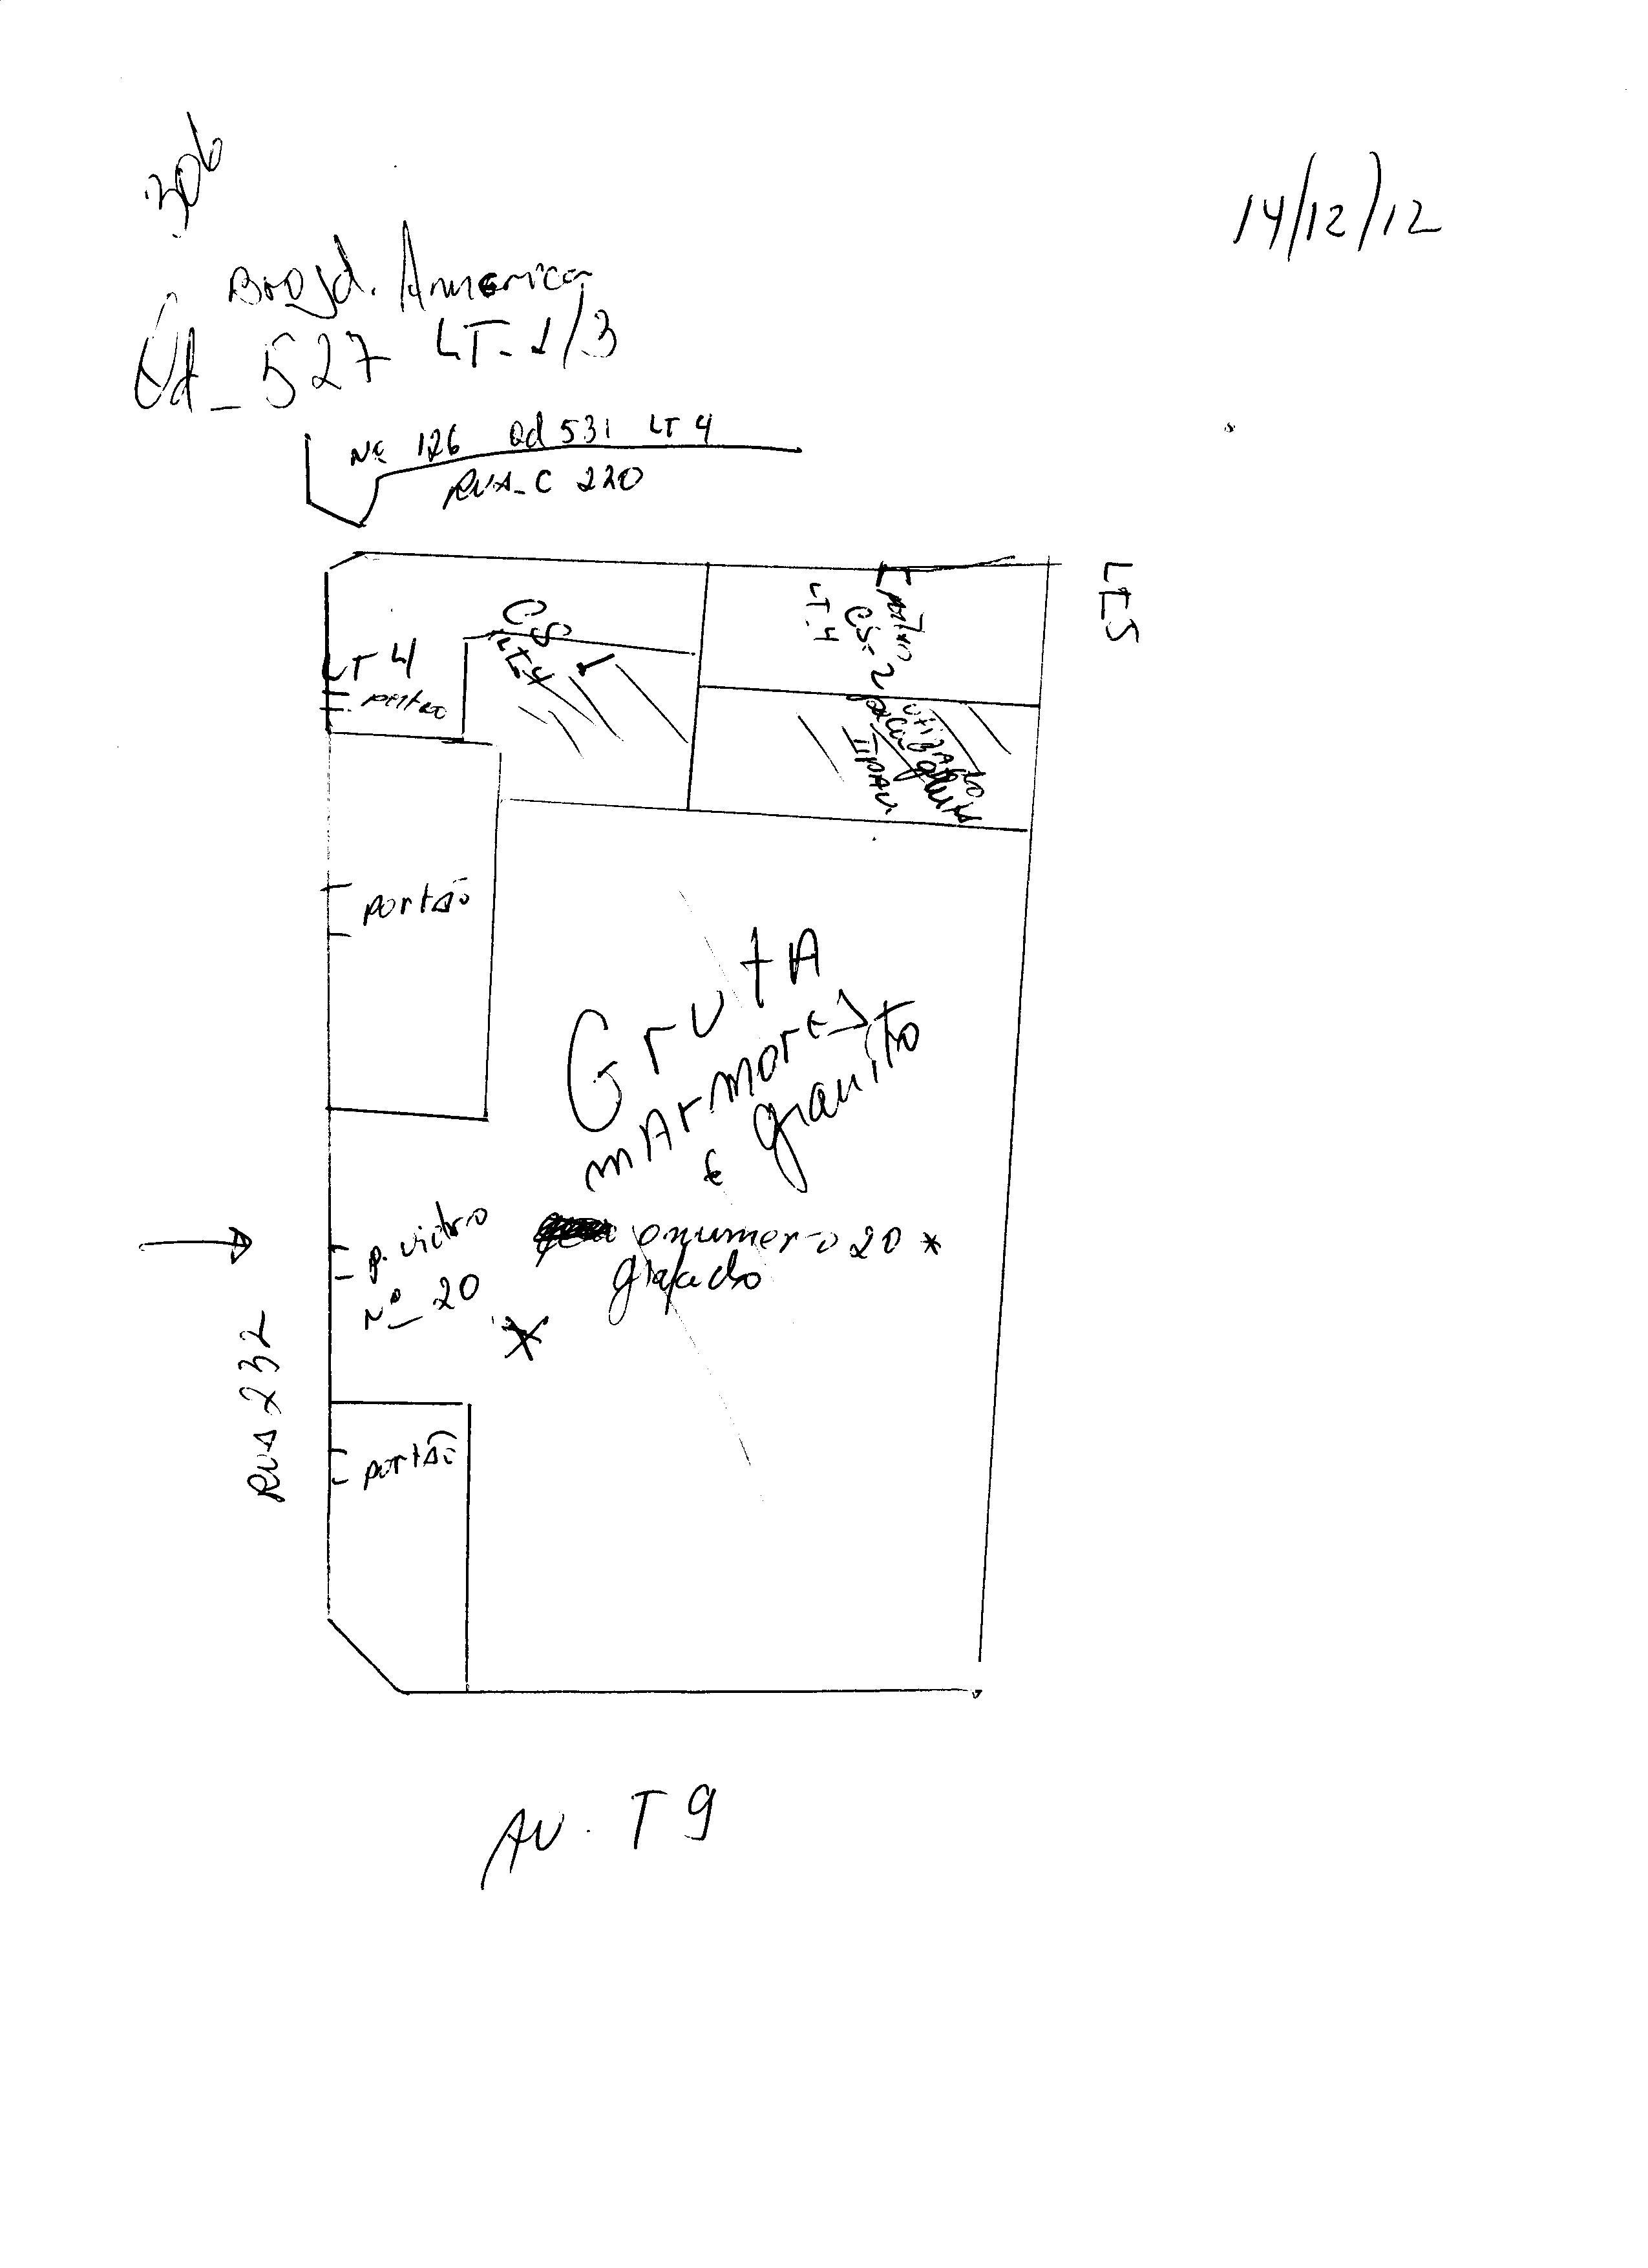 306
14/12/12
Bro Jd. America
Qd_ 527 LT-1/3
Nº 126 Qd 531 LT 4
RUA-C 220
LT 5
LT 4
CS 1
LT 4
LT.4
CS-2
II PAV.
portão
Gruta
marmores
e granito
p. vidro
Nº_ 20
onumero 20 *
grafado
RUA 232
portão
AV. T9